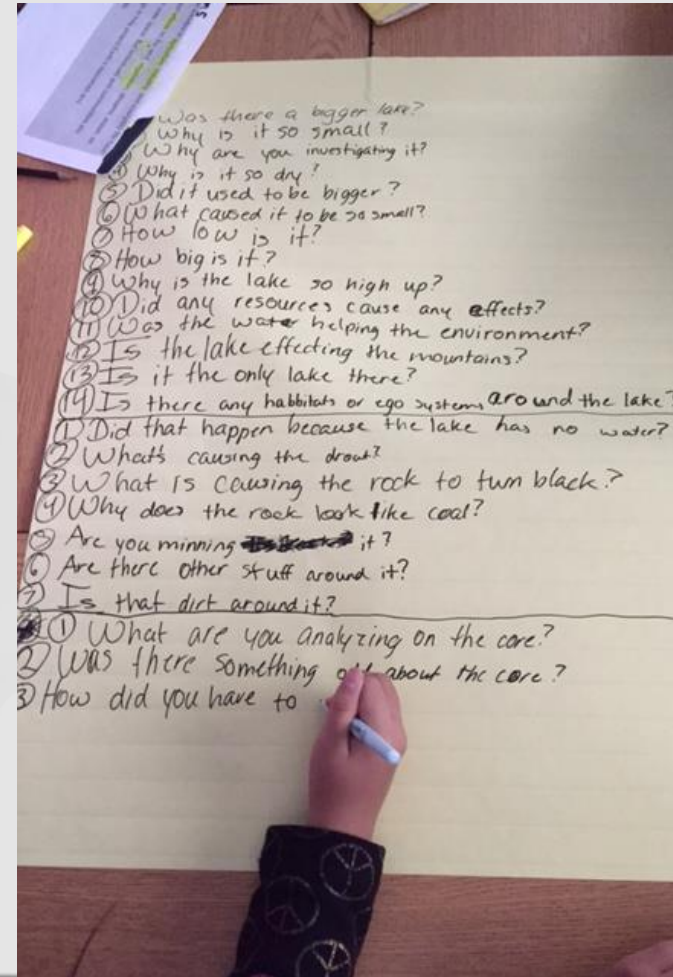 Was there a bigger lake?
Why is it so small?
Why are you investigating it?
④ Why is it so dry?
⑤ Did it used to be bigger?
⑥ What caused it to be so small?
⑦ How low is it?
⑧ How big is it?
⑨ Why is the lake so high up?
⑩ Did any resources cause any effects?
⑪ Was the water helping the environment?
⑫ Is the lake effecting the mountains?
⑬ Is it the only lake there?
⑭ Is there any habbitats or ego systems around the lake?
① Did that happen because the lake has no water?
② What's causing the drout?
③ What is causing the rock to turn black?
④ Why does the rock look like coal?
⑤ Are you minning it?
⑥ Are there other stuff around it?
⑦ Is that dirt around it?
① What are you analyzing on the core?
② Was there something about the core?
③ How did you have to